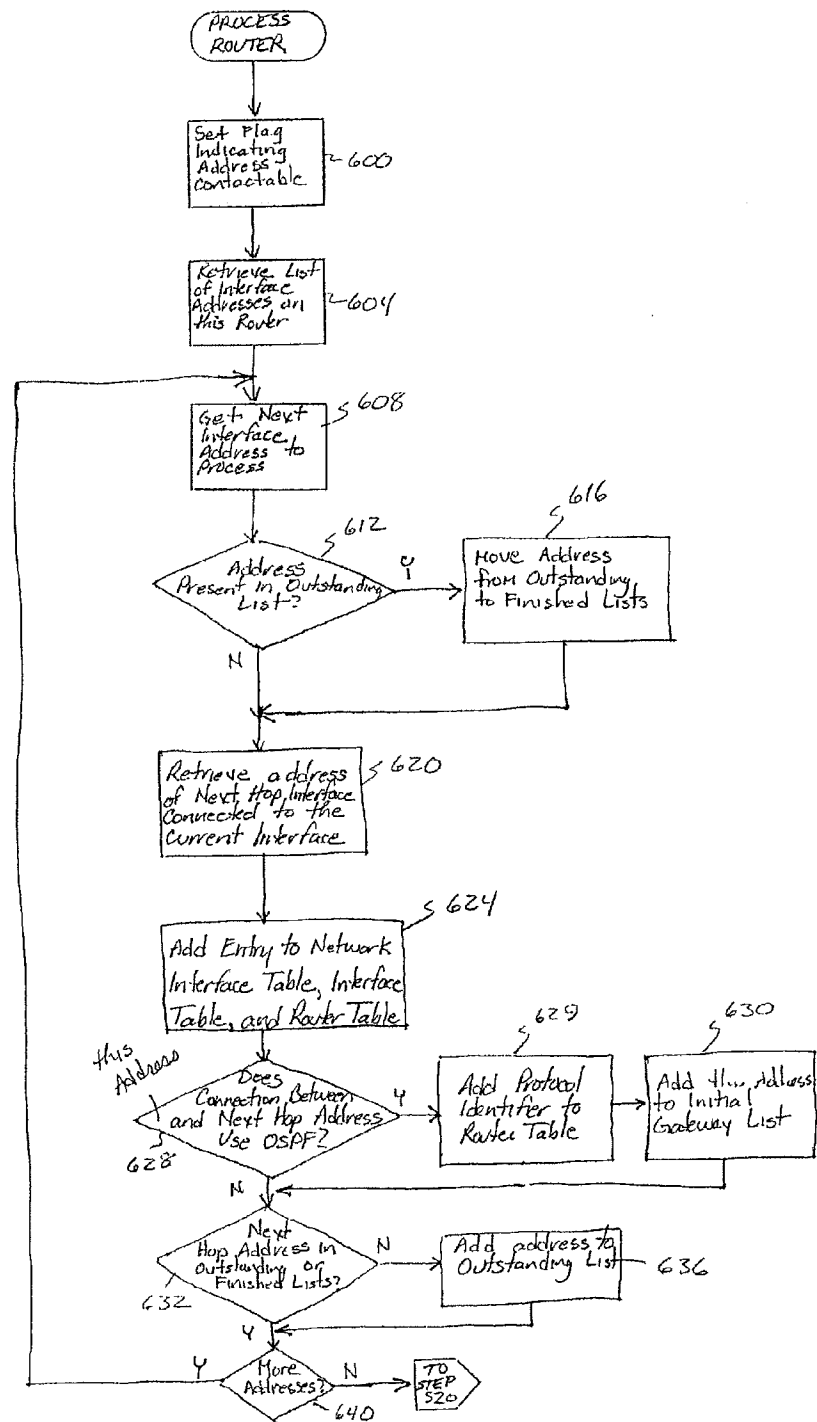 PROCESS
ROUTER
Set Flag
Indicating
Address
Contactable
600
Retrieve List
of Interface
Addresses on
this Router
604
Get Next
Interface
Address to
Process
608
612
Address
Present in Outstanding
List?
Y
N
616
Move Address
from Outstanding
to Finished Lists
Retrieve address
of Next Hop Interface
Connected to the
Current Interface
620
624
Add Entry to Network
Interface Table, Interface
Table, and Router Table
this
Address
Does
Connection Between
and Next Hop Address
Use OSPF?
628
Y
N
629
Add Protocol
Identifer to
Router Table
630
Add Address
to Initial
Gateway List
Next
Hop Address in
Outstanding or
Finished Lists?
632
N
Y
Add address to
Outstanding List
636
More
Addresses?
640
Y
N
TO
STEP
520